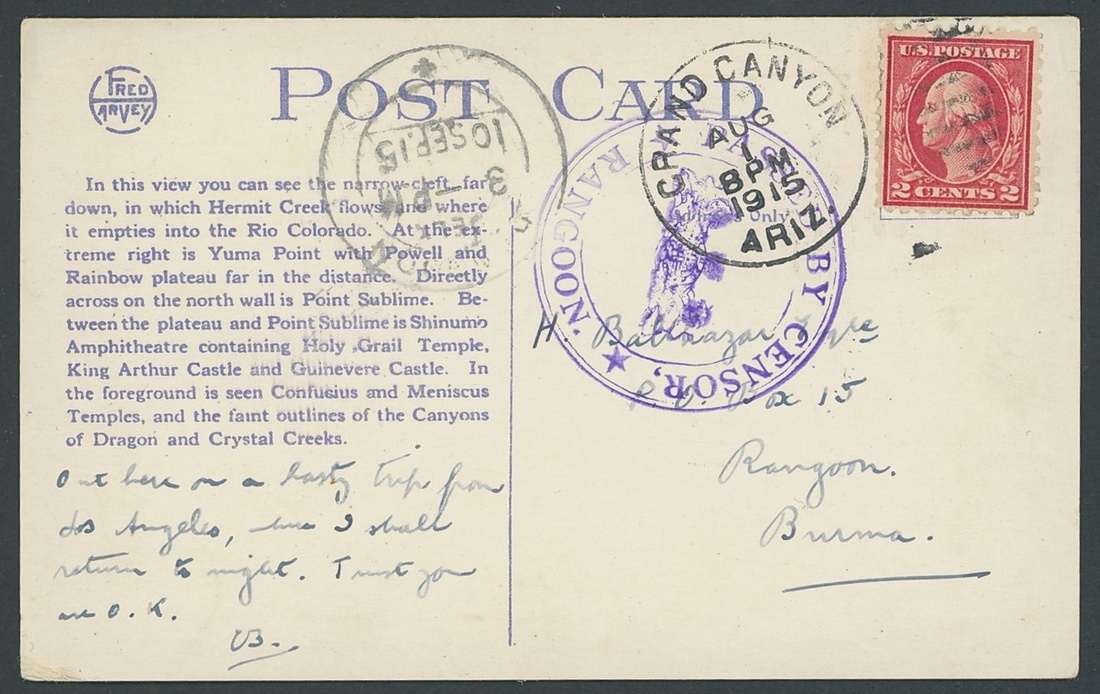 FRED
HARVEY
POST CARD
In this view you can see the narrow cleft far
down, in which Hermit Creek flows and where
it empties into the Rio Colorado. At the ex-
treme right is Yuma Point with Powell and
Rainbow plateau far in the distance. Directly
across on the north wall is Point Sublime. Be-
tween the plateau and Point Sublime is Shinumo
Amphitheatre containing Holy Grail Temple,
King Arthur Castle and Guinevere Castle. In
the foreground is seen Confucius and Meniscus
Temples, and the faint outlines of the Canyons
of Dragon and Crystal Creeks.
Out here on a hasty trip from
Los Angeles, where I shall
return to night. Trust you
are O.K.
VB.
10 SEP. 15
3 - PM
GRAND CANYON
AUG
1
8 PM
1915
ARIZ
U.S. POSTAGE
2 CENTS 2
Address Only
PASSED BY CENSOR,
RANGOON.
H. Balthazar
P.O. Box 15
Rangoon.
Burma.